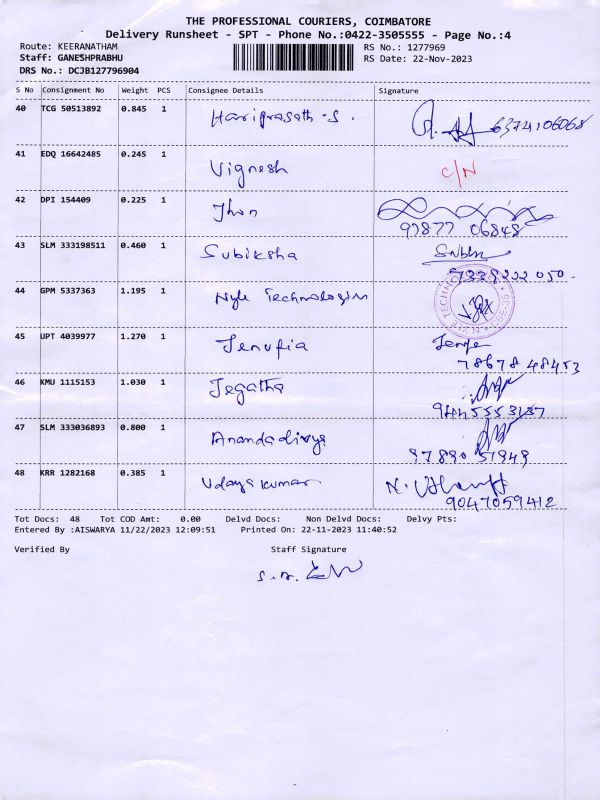 THE PROFESSIONAL COURIERS, COIMBATORE
Delivery Runsheet - SPT - Phone No.:0422-3505555 - Page No.:4
Route: KEERANATHAM RS No.: 1277969
Staff: GANESHPRABHU RS Date: 22-Nov-2023
DRS No.: DCJB127796904
S No Consignment No Weight PCS Consignee Details Signature
40 TCG 50513892 0.845 1 Hariprasath-S. 6374106068
41 EDQ 16642485 0.245 1 Vignesh C/N
42 DPI 154409 0.225 1 Jhon
97877 06848
43 SLM 333198511 0.460 1 Subiksha
7339222050
44 GPM 5337363 1.195 1 Nyle Technologies
45 UPT 4039977 1.270 1 Jenufia
78678 48453
46 KMU 1115153 1.030 1 Jegatha
47 SLM 333036893 0.800 1 Anandadivya
48 KRR 1282168 0.385 1 Udayakumar
9047059412
Tot Docs: 48 Tot COD Amt: 0.00 Delvd Docs: Non Delvd Docs: Delvy Pts:
Entered By :AISWARYA 11/22/2023 12:09:51 Printed On: 22-11-2023 11:40:52
Verified By Staff Signature